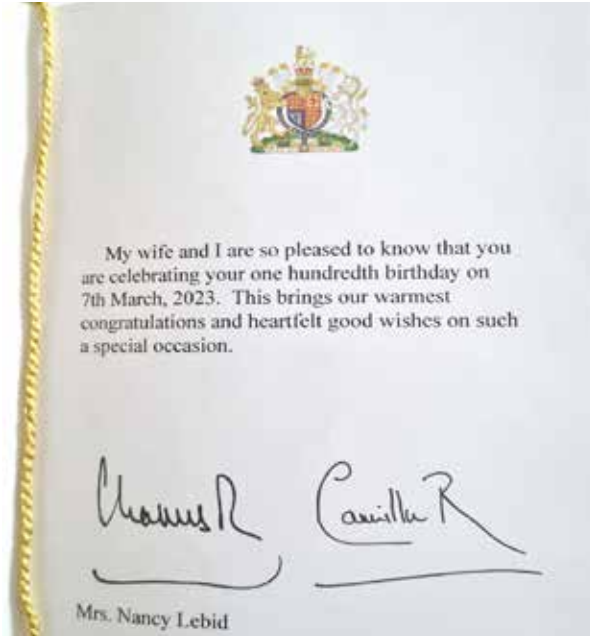 My wife and I are so pleased to know that you
are celebrating your one hundredth birthday on
7th March, 2023. This brings our warmest
congratulations and heartfelt good wishes on such
a special occasion.
Charles R Camilla R
Mrs. Nancy Lebid